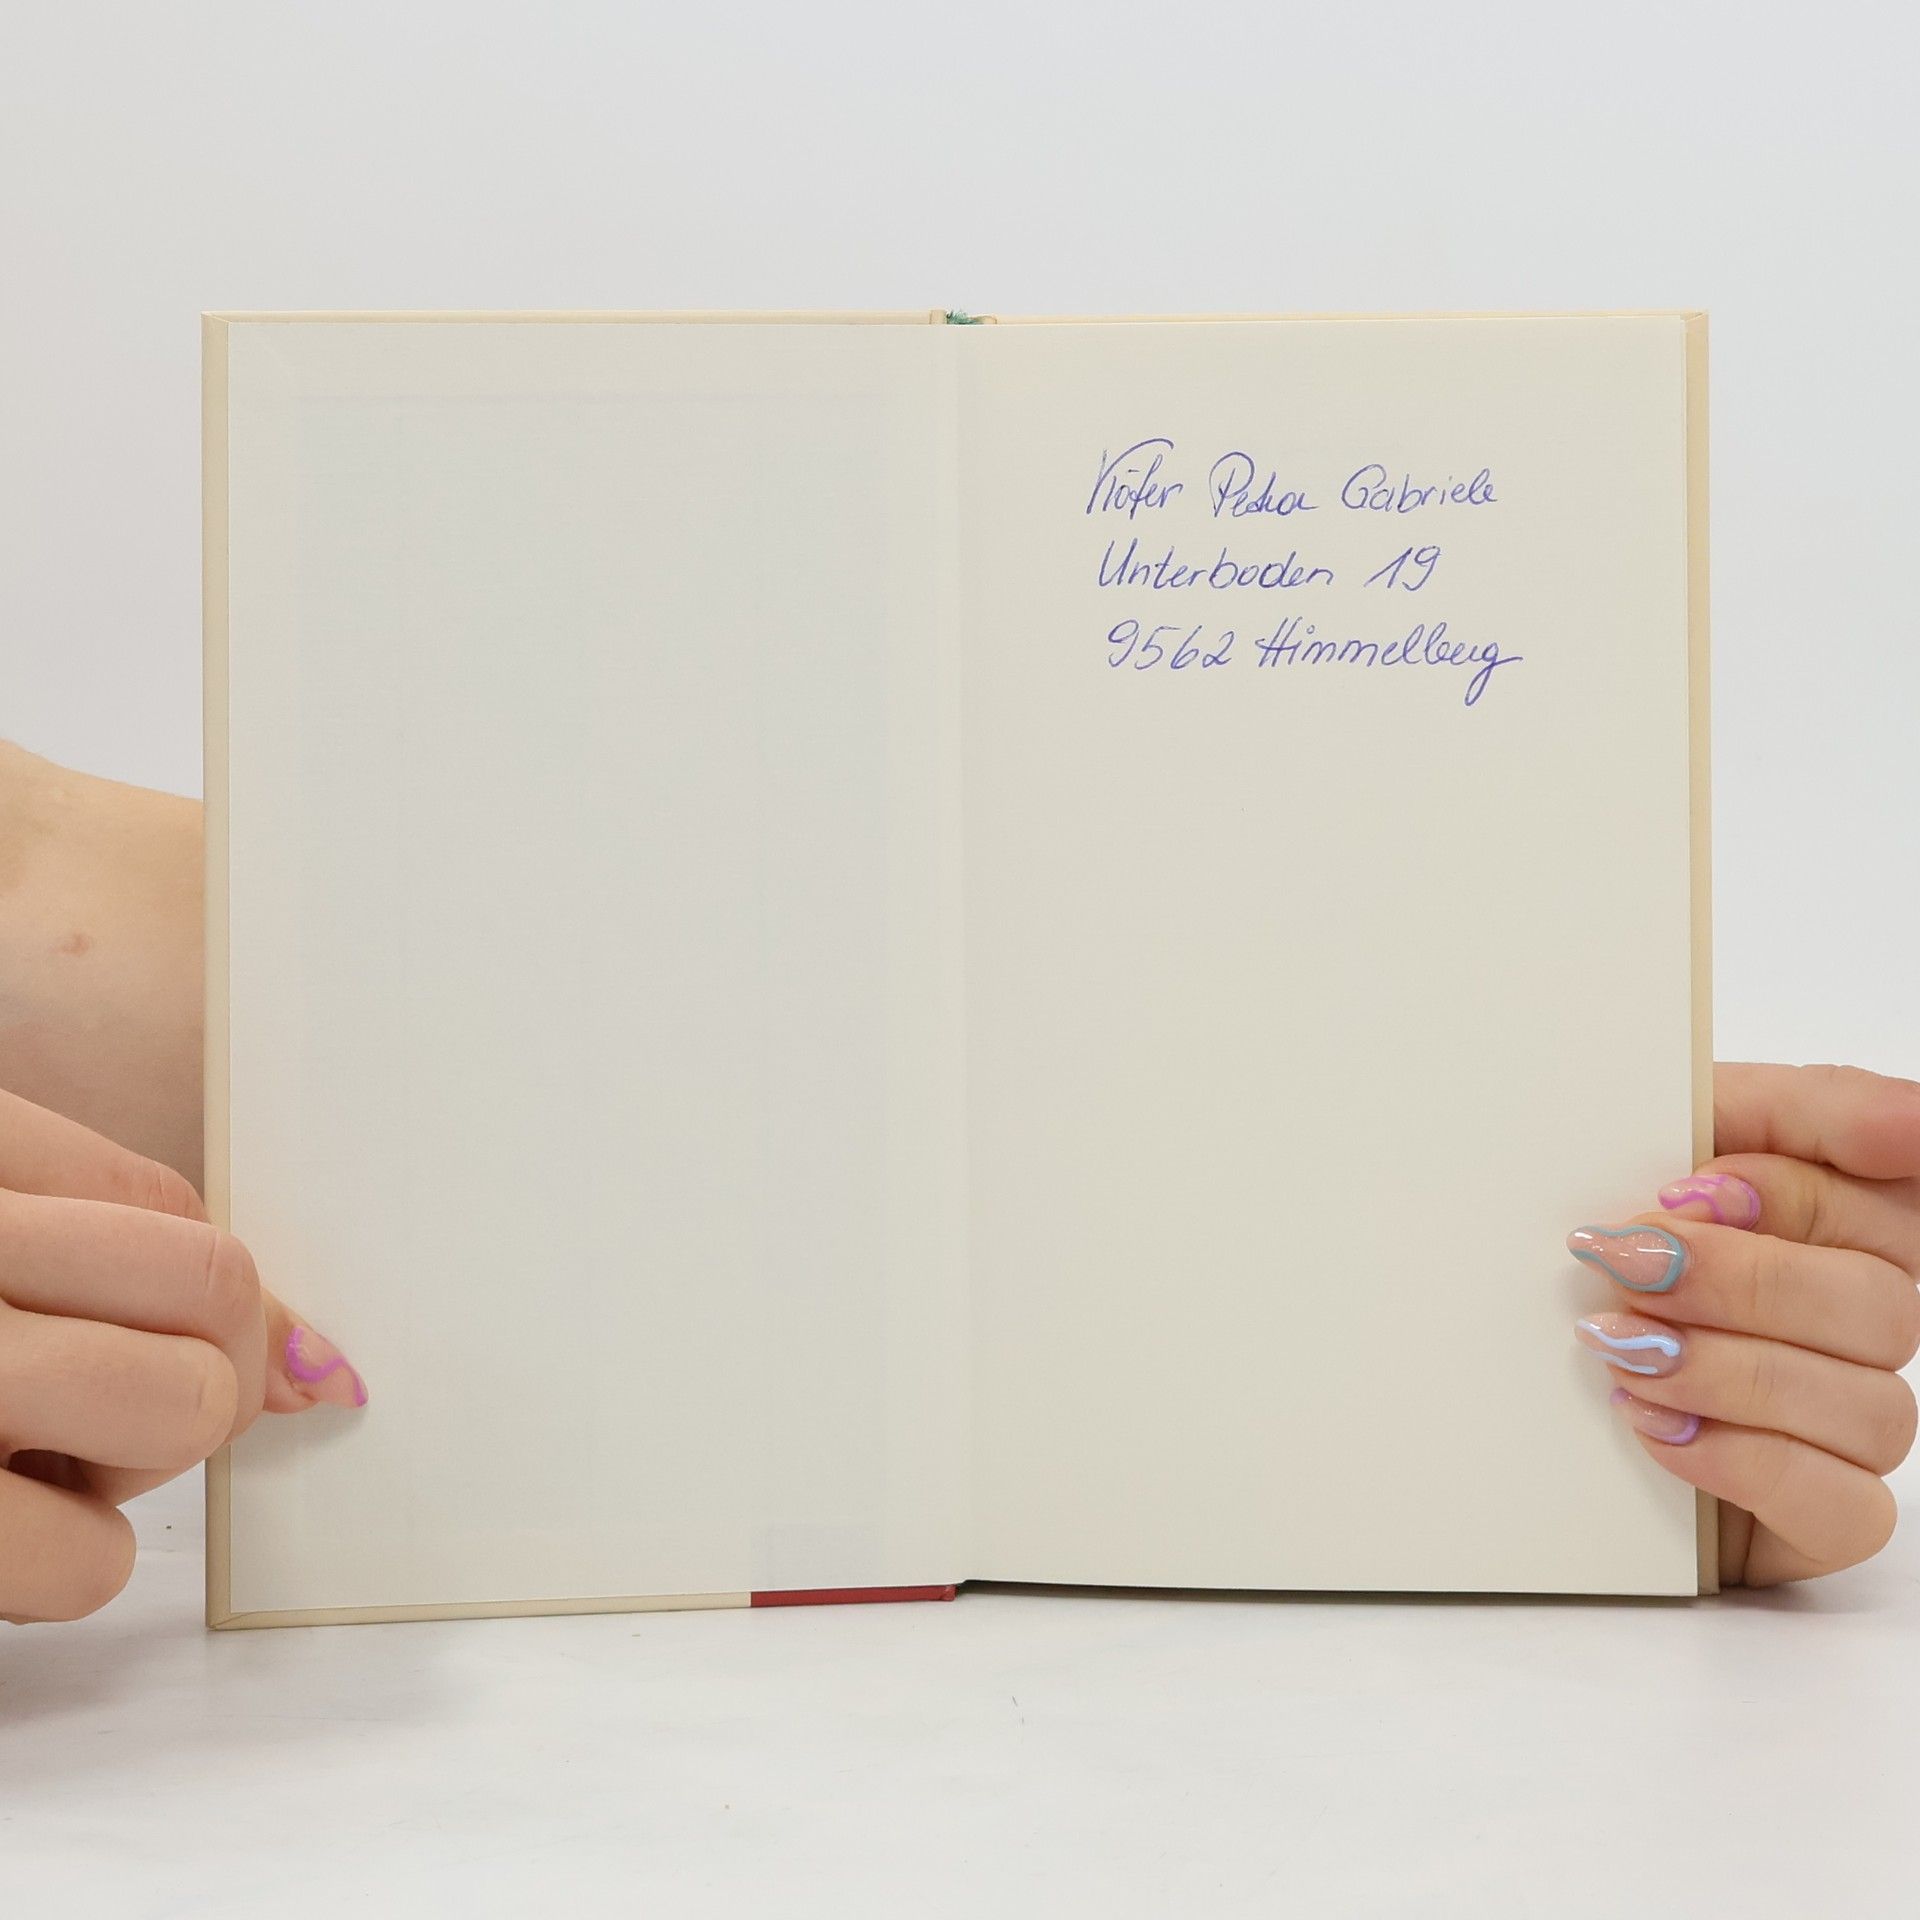 Köfer Petra Gabriele
Unterboden 19
9562 Himmelberg